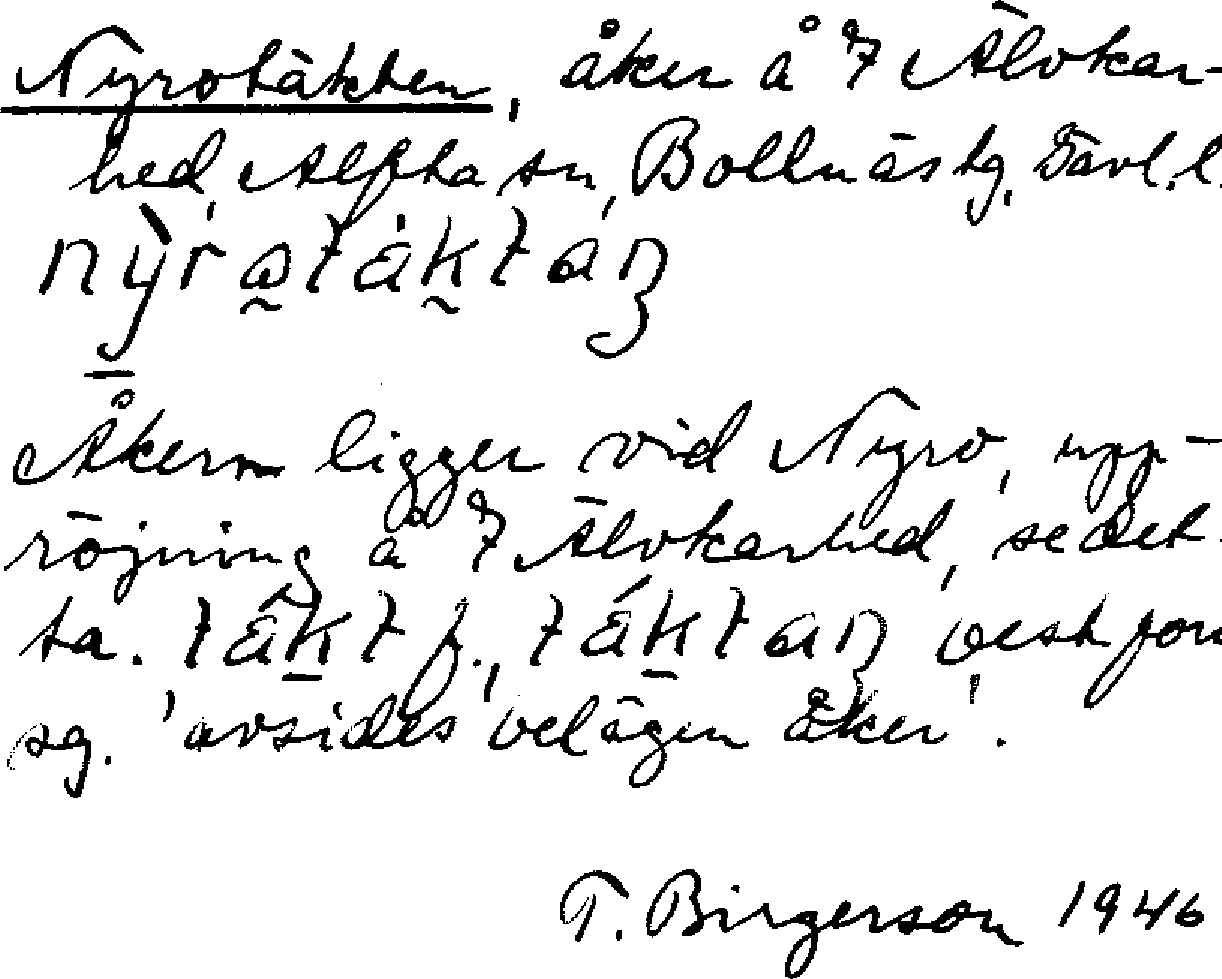 Nyrotäkten, åker å 7 Älvkar-
hed, Alfta sn, Bollnäs tg, Gävl. l.
nỳrotäktan
Åkern ligger vid Nyro, upp-
röjning å 7 Älvkarhed, se det-
ta. täkt f., täktan best form
sg. 'avsides belägen åker'.
T. Birgerson 1946